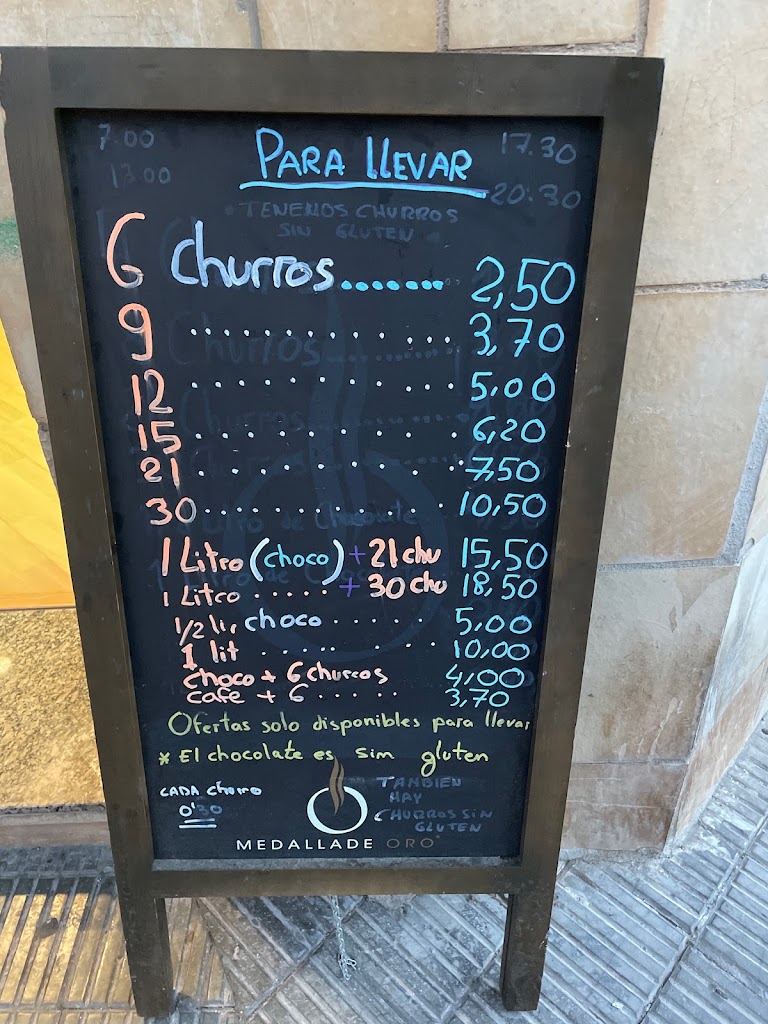 7.00
PARA LLEVAR
17.30
13.00
20:30
TENEMOS CHURROS
SIN GLUTEN
6 churros....... 2,50
9 ............ 3,70
12 ............ 5,00
15 ............ 6,20
21 ............ 7,50
30 ............ 10,50
1 Litro (choco) + 21 chu 15,50
1 Litro ..... + 30 chu 18,50
1/2 li, choco ..... 5,00
1 lit ........ 10,00
choco + 6 churros 4,00
cafe + 6 ..... 3,70
Ofertas solo disponibles para llevar
* El chocolate es sim gluten
CADA churro
0'30
TAMBIEN
HAY
CHURROS SIN
GLUTEN
MEDALLADE ORO